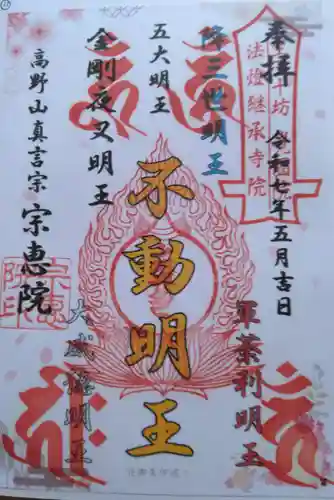 奉拝
法燈継承寺院
令和七年五月吉日
降三世明王
軍荼利明王
五大明王
不動明王
金剛夜叉明王
大威徳明王
高野山真言宗
宗恵院